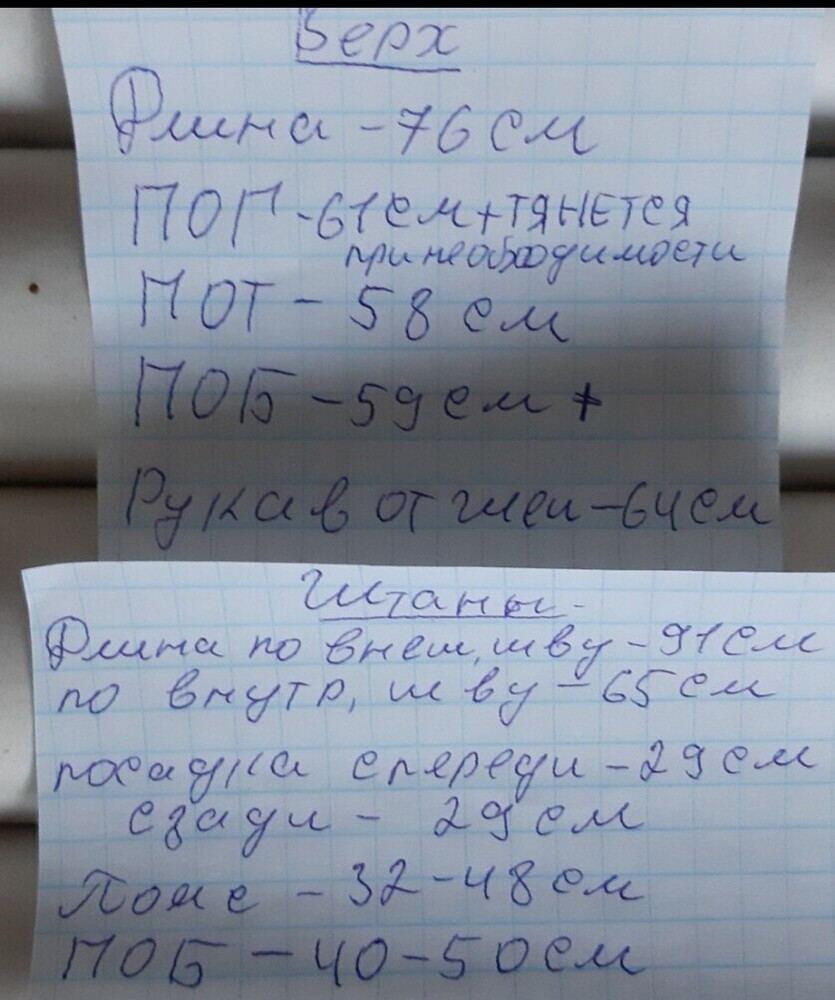 Верх
Длина - 76 см
ПОГ - 61 см + ТЯНЕТСЯ
при необходимости
ПОТ - 58 см
ПОБ - 59 см +
Рукав от шеи - 64 см
Штаны
Длина по внеш, шву - 91 см
по внутр, шву - 65 см
посадка спереди - 29 см
сзади - 29 см
Пояс - 32-48 см
ПОБ - 40-50 см